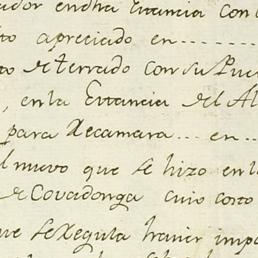 ador endha Estancia con
to apreciado en
to deterrado con su Pue
, en la Estancia del Al
para Recamara ... en ..
l nuevo que se hizo en l
de Covadonga cuio costo
ue se regula haver imp